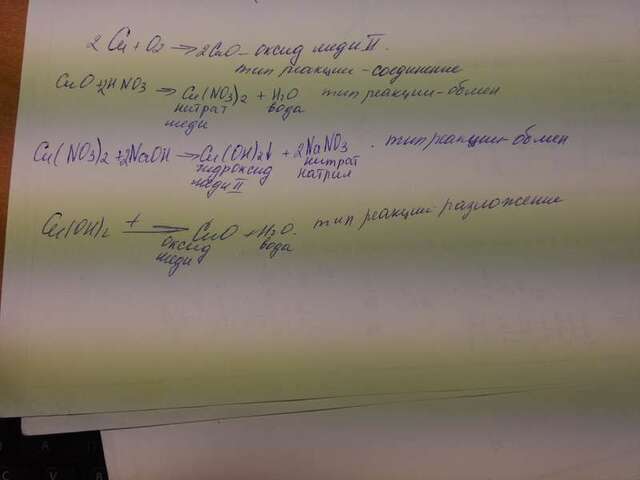 2 Cu + O2 → 2CuO - оксид меди II.
тип реакции - соединение
CuO + 2HNO3 → Cu(NO3)2 + H2O тип реакции - обмен
нитрат вода
меди
Cu(NO3)2 + 2NaOH → Cu(OH)2↓ + 2NaNO3. тип реакции - обмен
гидроксид нитрат
меди II натрия
Cu(OH)2 t→ CuO + H2O. тип реакции - разложение
оксид вода
меди